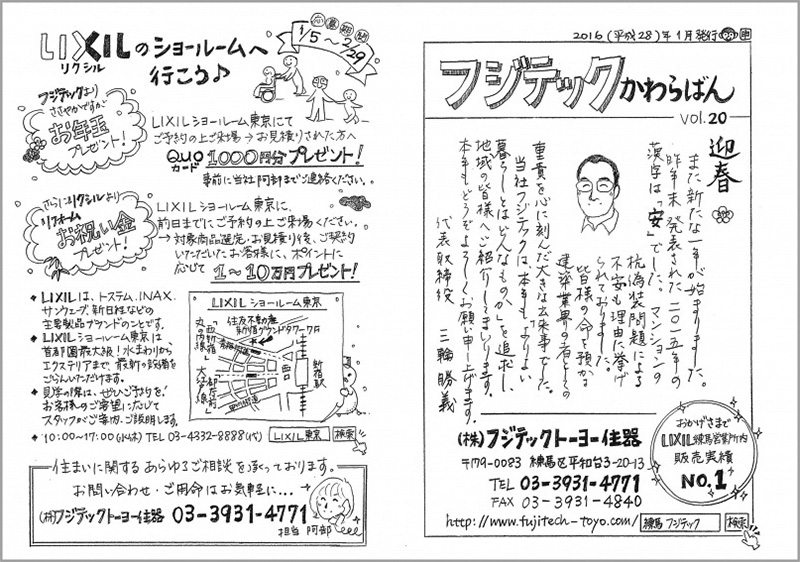 LIXILのショールームへ
リクシル
行こう♪
応募期間
1/5〜2/29
フジテックより
ささやかですが
お年玉
プレゼント!
LIXILショールーム東京にて
ご予約の上ご来場→お見積りされた方へ
QUOカード 1000円分プレゼント!
事前に当社阿部までご連絡ください。
さらにリクシルより
リフォーム
お祝い金
プレゼント!
LIXILショールーム東京に、
前日までにご予約の上ご来場ください。
→対象商品選定・お見積り後、ご契約
いただいたお客様に、ポイントに
応じて 1〜10万円プレゼント!
◆LIXILは、トステム、INAX、
サンウェーブ、新日軽などの
主要製品ブランドのことです。
◆LIXILショールーム東京は
首都圏最大級!水まわりから
エクステリアまで、最新の設備を
ごらんいただけます。
◆見学の際は、ぜひご予約を!
お客様のご希望に応じて
スタッフがご案内・ご説明します。
◆10:00〜17:00(水休) TEL 03-4332-8888(代)
LIXIL東京 検索
LIXILショールーム東京
住友不動産
新宿グランドタワー7F
丸の内線
「西新宿」
大江戸線
「都庁前」
新宿駅
住まいに関するあらゆるご相談を承っております。
お問い合わせ・ご用命はお気軽に…→
(株)フジテックトーヨー住器 03-3931-4771
担当 阿部
2016(平成28)年1月発行
フジテックかわらばん
vol.20
迎春
また新たな一年が始まりました。
昨年末発表された二〇一五年の
漢字は「安」でした。マンションの
杭偽装問題による
不安も理由に挙げ
られておりました。
皆様の命を預かる
建築業界の者としての
重責を心に刻んだ大きな出来事でした。
当社フジテックは、本年も、よりよい
暮らしとはどんなものか、を追求し、
地域の皆様へご紹介してまいります。
本年もどうぞよろしくお願い申し上げます。
代表取締役 三輪勝義
(株)フジテックトーヨー住器
〒179-0083 練馬区平和台3-20-13
TEL 03-3931-4771
FAX 03-3931-4840
http://www.fujitech-toyo.com/
練馬 フジテック 検索
おかげさまで
LIXIL練馬営業所内
販売実績
NO.1